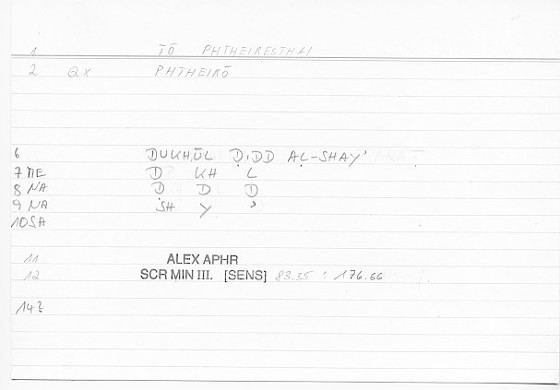 1 TŌ PHTHEIRESTHAI
2 QX PHTHEIRŌ
6 DUKHŪL ḌIDD AL-SHAY'
7 ME D KH L
8 NA Ḍ D D
9 NA SH Y '
10 SA
11 ALEX APHR
12 SCR MIN III. [SENS] 83.35 : 176.66
14